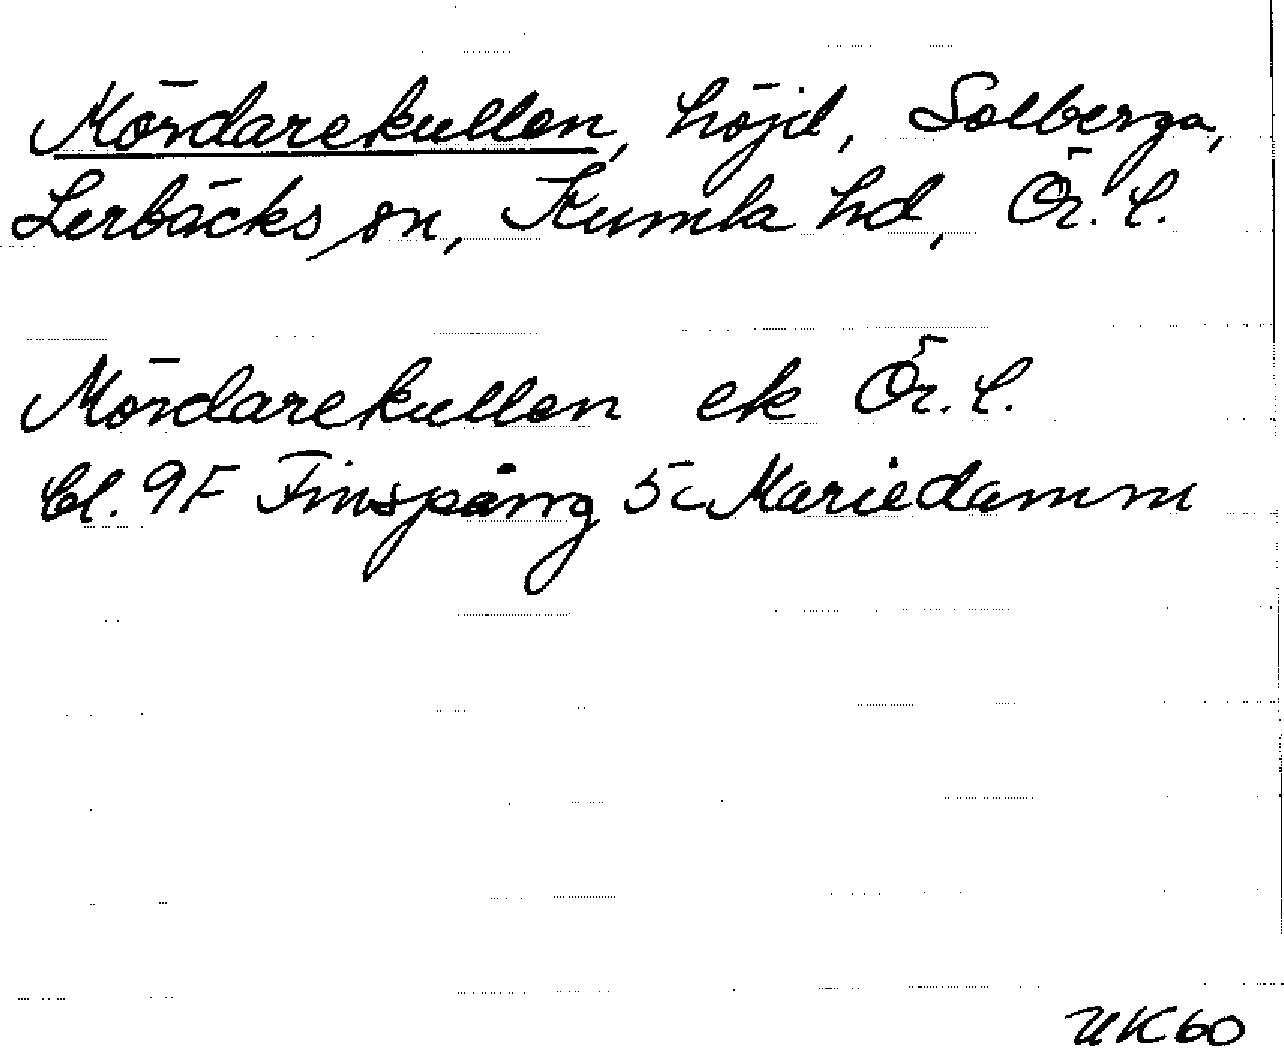 Mördarekullen, höjd, Solberga,
Lerbäcks sn, Kumla hd, Ör. l.
Mördarekullen ek Ör. l.
bl. 9F Finspång 5c Mariedamm
UK60